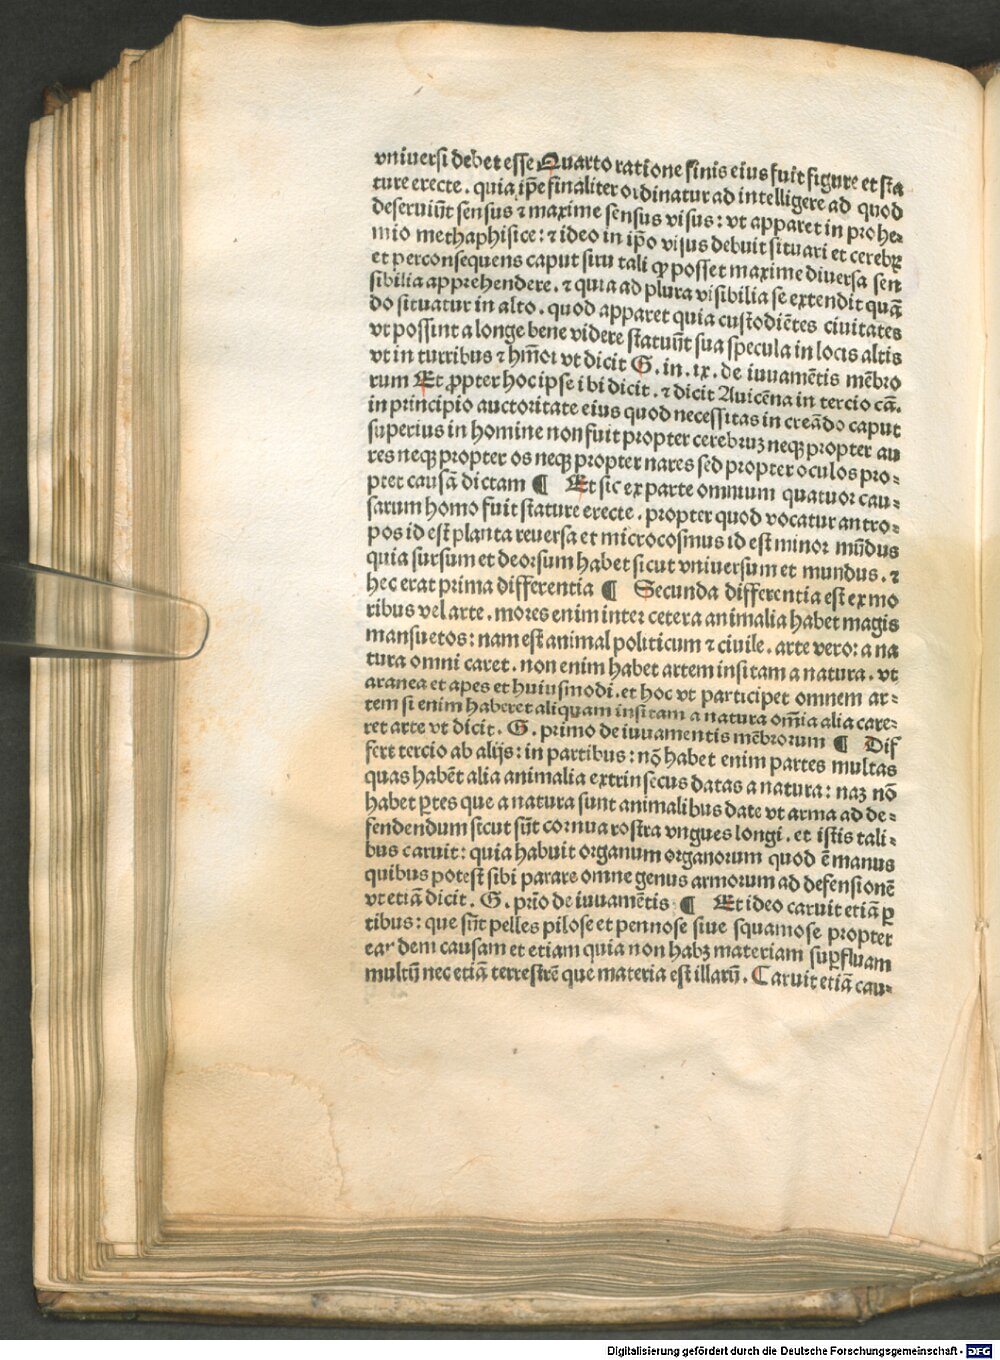 vniuersi debet esse Quarto ratione finis eius fuit figure et sta
ture erecte. quia ip̄e finaliter ordinatur ad intelligere ad quod
deseruiūt sensus ⁊ maxime sensus visus: vt apparet in prohe⸗
mio methaphisice: ⁊ ideo in ip̄o visus debuit situari et cerebrꝝ
et perconsequens caput situ tali ꝙ posset maxime diuersa sen
sibilia apprehendere. ⁊ quia ad plura visibilia se extendit quā
do situatur in alto. quod apparet quia custodiētes ciuitates
vt possint a longe bene videre statuūt sua specula in locis altis
vt in turribus ⁊ hm̄oi vt dicit G. in. ix. de iuuamētis mēbro
rum Et ꝓpter hoc ipse ibi dicit. ⁊ dicit Auicēna in tercio cā.
in principio auctoritate eius quod necessitas in creādo caput
superius in homine non fuit propter cerebruꝫ neqꝫ propter au
res neqꝫ propter os neqꝫ propter nares sed propter oculos pro⸗
pter causā dictam ¶ Et sic ex parte omnium quatuor cau⸗
sarum homo fuit stature erecte. propter quod vocatur antro⸗
pos id est planta reuersa et microcosmus id est minor mūdus
quia sursum et deorsum habet sicut vniuersum et mundus. ⁊
hec erat prima differentia ¶ Secunda differentia est ex mo
ribus vel arte. mores enim inter cetera animalia habet magis
mansuetos: nam est animal politicum ⁊ ciuile. arte vero: a na
tura omni caret. non enim habet artem insitam a natura. vt
aranea et apes et huiusmodi. et hoc vt participet omnem ar⸗
tem si enim haberet aliquam insitam a natura om̄ia alia care⸗
ret arte vt dicit. G. primo de iuuamentis mēbrorum ¶ Dif
fert tercio ab alijs: in partibus: nō habet enim partes multas
quas habēt alia animalia extrinsecus datas a natura: naꝫ nō
habet ꝑtes que a natura sunt animalibus date vt arma ad de⸗
fendendum sicut sūt cornua rostra vngues longi. et istis tali⸗
bus caruit: quia habuit organum organorum quod ē manus
quibus potest sibi parare omne genus armorum ad defensionē
vt etiā dicit. G. prīo de iuuamētis ¶ Et ideo caruit etiā ꝑ
tibus: que sūt pelles pilose et pennose siue squamose propter
eandem causam et etiam quia non habꝫ materiam suꝑfluam
multū nec etiā terrestrē que materia est illarū. Caruit etiā cau⸗
Digitalisierung gefördert durch die Deutsche Forschungsgemeinschaft - DFG